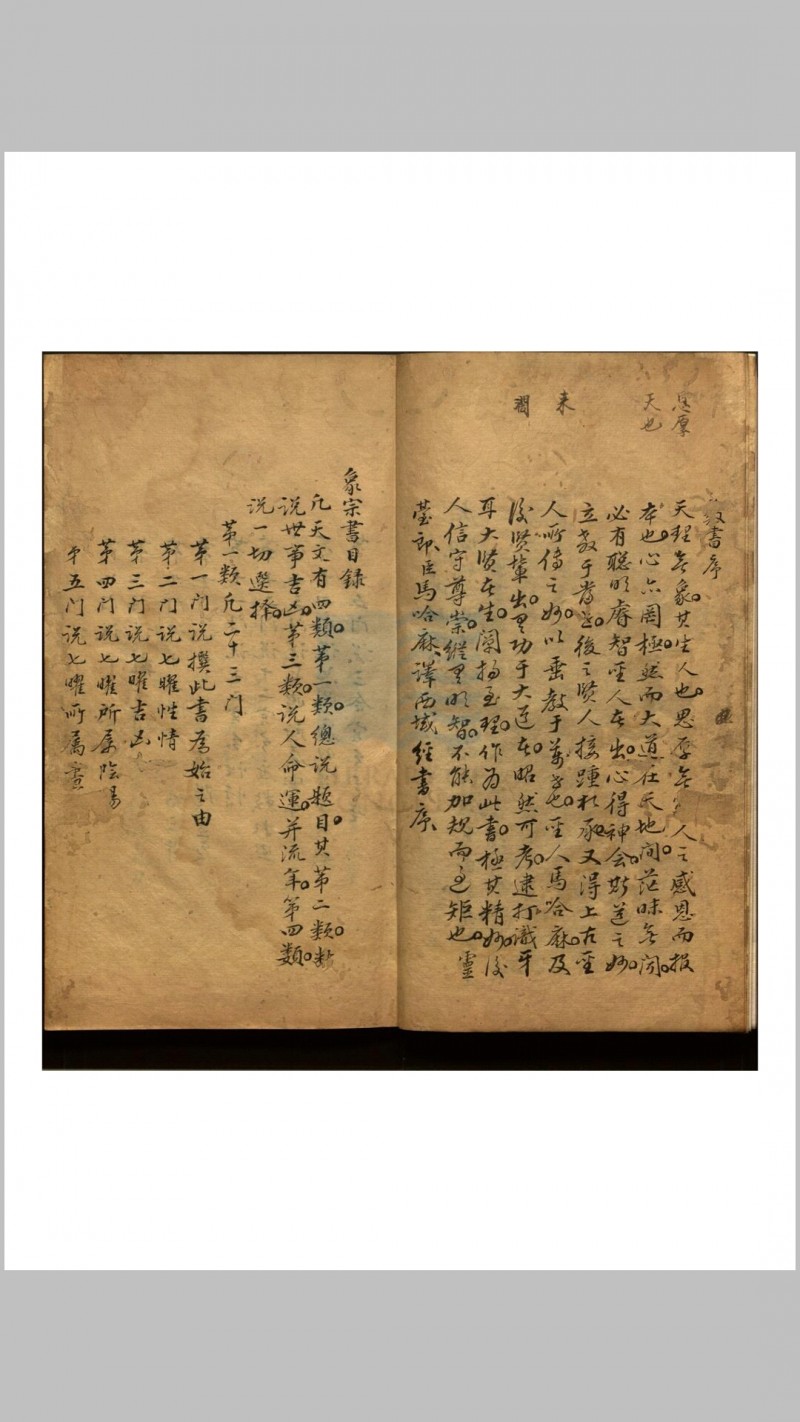 恩厚
天也
来
書序
天理无象其生人也恩厚无人之感恩而报
本也心亦罔極然而大道在天地间茫昧无闻
必有聪明睿智聖人者出心得神会斯道之妙
立教于當世後之贤人接踵相承又得上古聖
人所傳之妙以垂教于萬世也聖人馬哈麻及
後贤輩出累功于大道者昭然可考逮打識牙
耳大贤者生闡揚至理作为此書極其精妙後
人信守尊崇縱累明智不能加规而过矩也靈
臺郎臣馬哈麻譯西域经書序
象宗書目録
凡天文有四類第一類總说题目其第二類断
说世事吉凶第三類说人命運并流年第四類
说一切選择
第一類凡二十三门
第一门说撰此書為始之由
第二门说七曜性情
第三门说七曜吉凶
第四门说七曜所属陰易
第五门说七曜所属